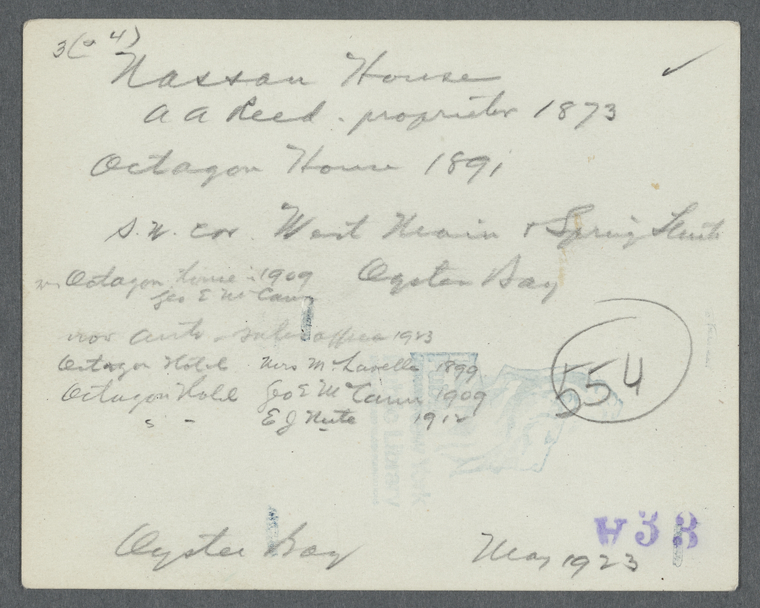 3(a 4)
Nassau House
A A Reed - proprietor 1873
Octagon House 1891
S.W. cor. West Main & Spring Streets
Octagon house - 1909 Oyster Bay
Geo E McCann
now auto - sales office 1923
Octagon Hotel Mrs M. Lavelle 1899
Octagon Hotel Geo E McCann 1909
" " E J Nute 1912
554
Oyster Bay May 1923
W33